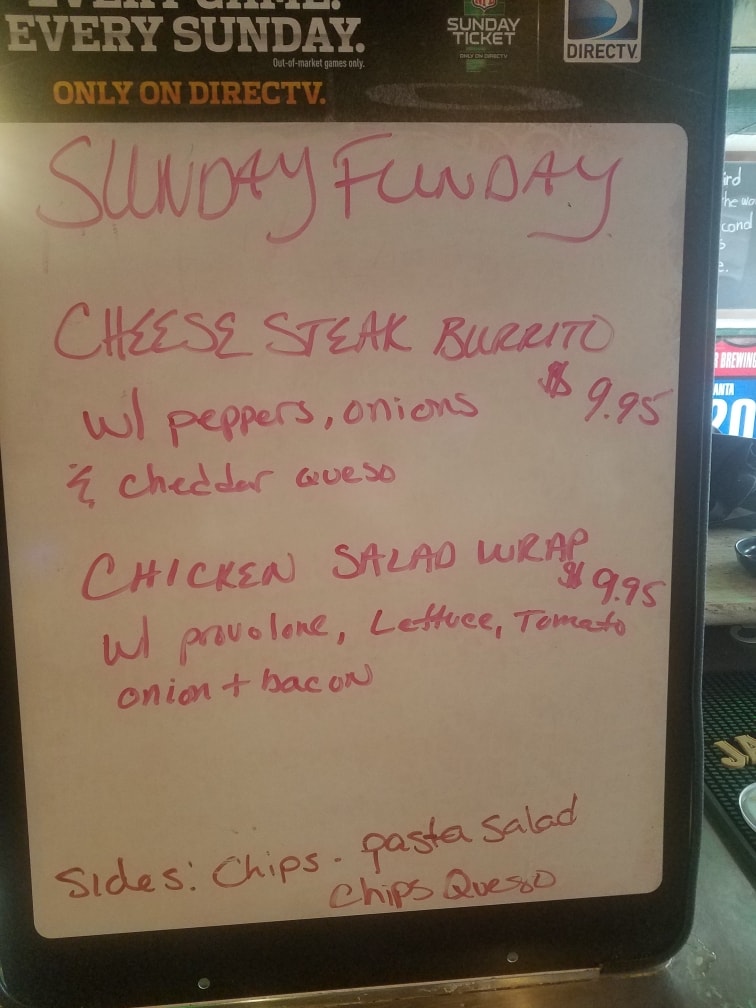 EVERY SUNDAY.
Out-of-market games only.
ONLY ON DIRECTV.
NFL
SUNDAY
TICKET
ONLY ON DIRECTV
DIRECTV
SUNDAY FUNDAY
CHEESE STEAK BURRITO
$9.95
w/ peppers, onions
& cheddar queso
CHICKEN SALAD WRAP
$9.95
w/ provolone, Lettuce, Tomato
onion + bacon
Sides: Chips - pasta salad
Chips Queso
BREWING
20
JA